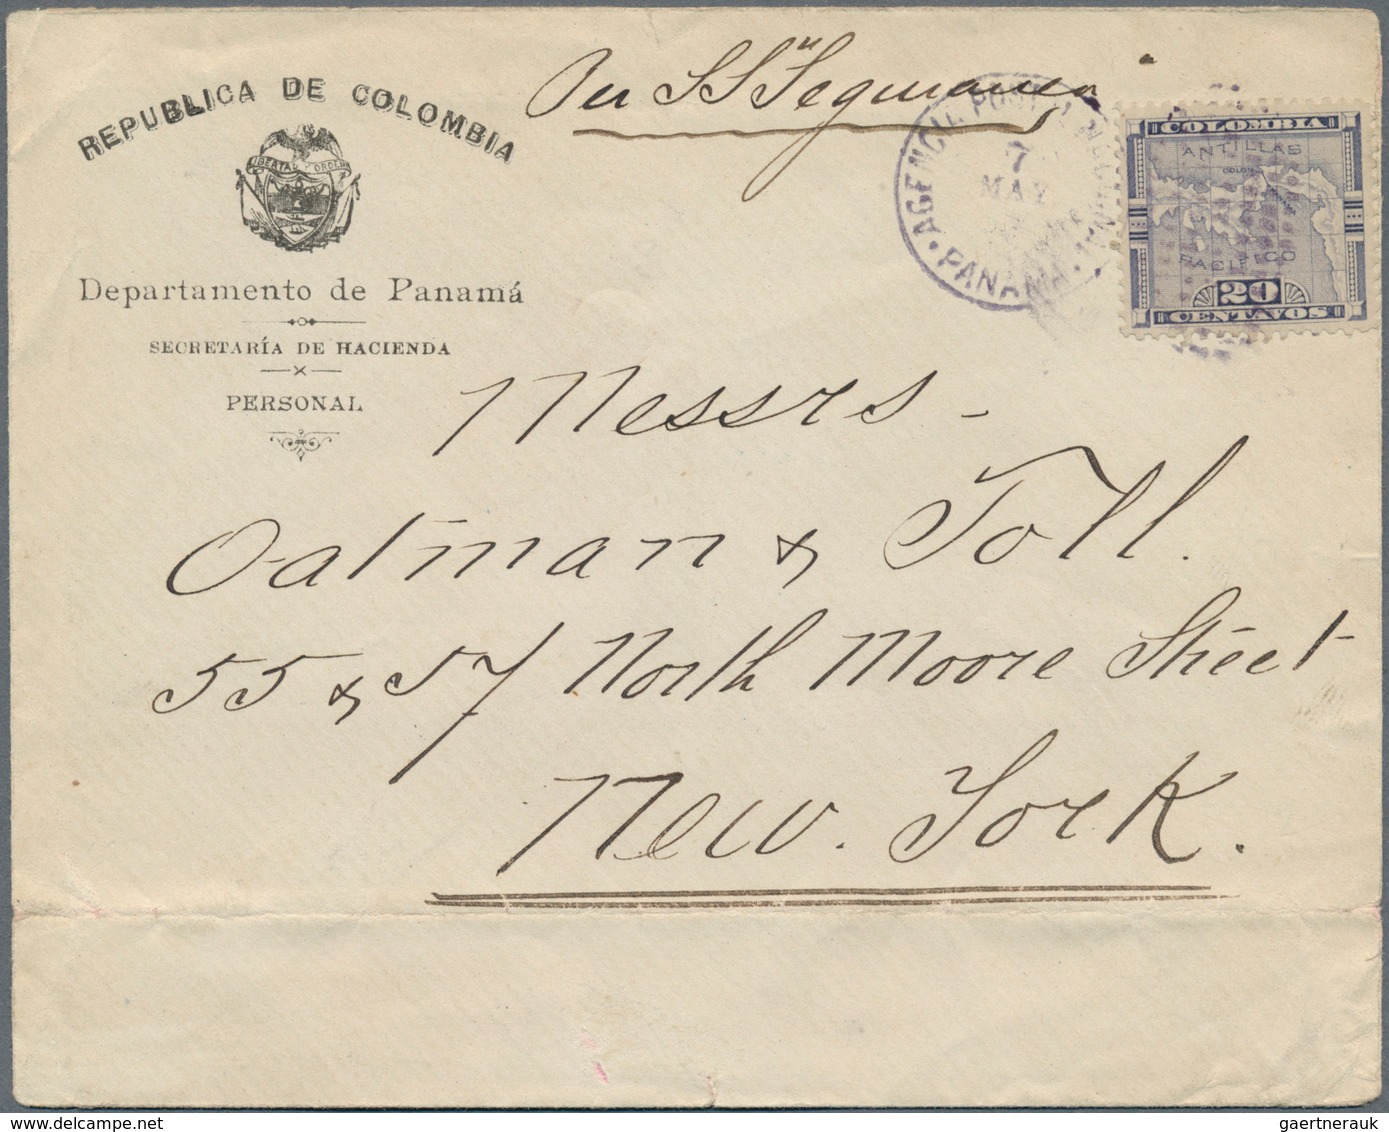 Per SS "Segurança
REPUBLICA DE COLOMBIA
LIBERTAD Y ORDEN
Departamento de Panamá
SECRETARÍA DE HACIENDA
PERSONAL
AGENCIA POSTAL NACIONAL
7
MAY
PANAMA
COLOMBIA
ANTILLAS
COLON
PANAMA
PACIFICO
20
CENTAVOS
Messrs -
Oatman & Toll.
55 & 57 North Moore Street
New. York.
gaertnerauk